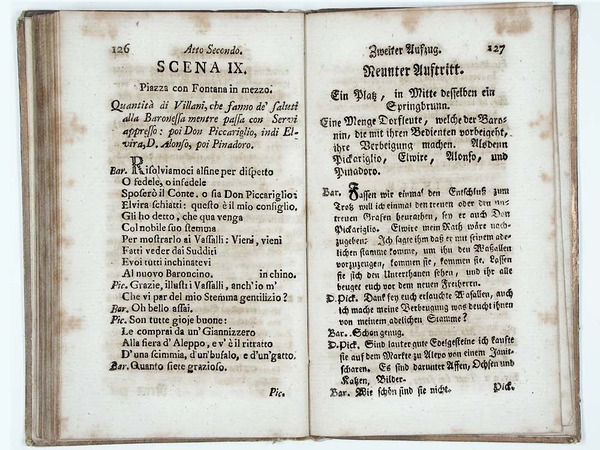 126 Atto Secondo.
SCENA IX.
Piazza con Fontana in mezzo.
Quantità di Villani, che fanno de' saluti
alla Baronessa mentre passa con Servi
appresso: poi Don Piccariglio, indi El-
vira, D. Alonso, poi Pinadoro.
Bar. Risolviamoci alfine per dispetto
O fedele, o infedele
Sposerò il Conte, o sia Don Piccariglio:
Elvira schiatti: questo è il mio consiglio.
Gli ho detto, che qua venga
Col nobile suo stemma
Per mostrarlo ai Vassalli: Vieni, vieni
Fatti veder dai Sudditi
E voi tutti inchinatevi
Al nuovo Baroncino. in chino.
Pic. Grazie, illustri Vassalli, anch'io m'
Che vi par del mio Stemma gentilizio?
Bar. Oh bello assai.
Pic. Son tutte gioje buone:
Le comprai da un' Giannizzero
Alla fiera d'Aleppo, e v'è il ritratto
D'una scimmia, d'un bufalo, e d'un'gatto.
Bar. Quanto siete grazioso.
Pic.
Zweiter Aufzug. 127
Neunter Auftritt.
Ein Platz, in Mitte desselben ein
Springbrunn.
Eine Menge Dorfleute, welche der Baro-
nin, die mit ihren Bedienten vorbeigeht,
ihre Verbeigung machen. Alsdenn
Pickariglio, Elwire, Alonso, und
Pinadoro.
Bar. Fassen wir einmal den Entschluß zum
Trotz will ich einmal den treuen oder den un-
treuen Grafen heurathen, sey er auch Don
Pickariglio. Elwire mein Rath wäre nach-
zugeben: Ich sagte ihm daß er mit seinem ade-
lichen stamme komme, um ihn den Waßallen
vorzuzeugen, kommen sie, kommen sie. Lassen
sie sich den Unterthanen sehen, und ihr alle
beuget euch vor dem neuen Freiherrn.
D. Pick. Dank sey euch erlauchte Wasallen, auch
ich mache meine Verbeugung was deucht ihnen
von meinem adelichen Stamme?
Bar. Schön genug.
D. Pick. Sind lauter gute Edelgesteine ich kaufte
sie auf dem Markte zu Alepo von einem Janit-
scharen. Es sind darunter Affen, Ochsen und
Katzen, Bilder.
Bar. Wie schön sind sie nicht.
Pick.